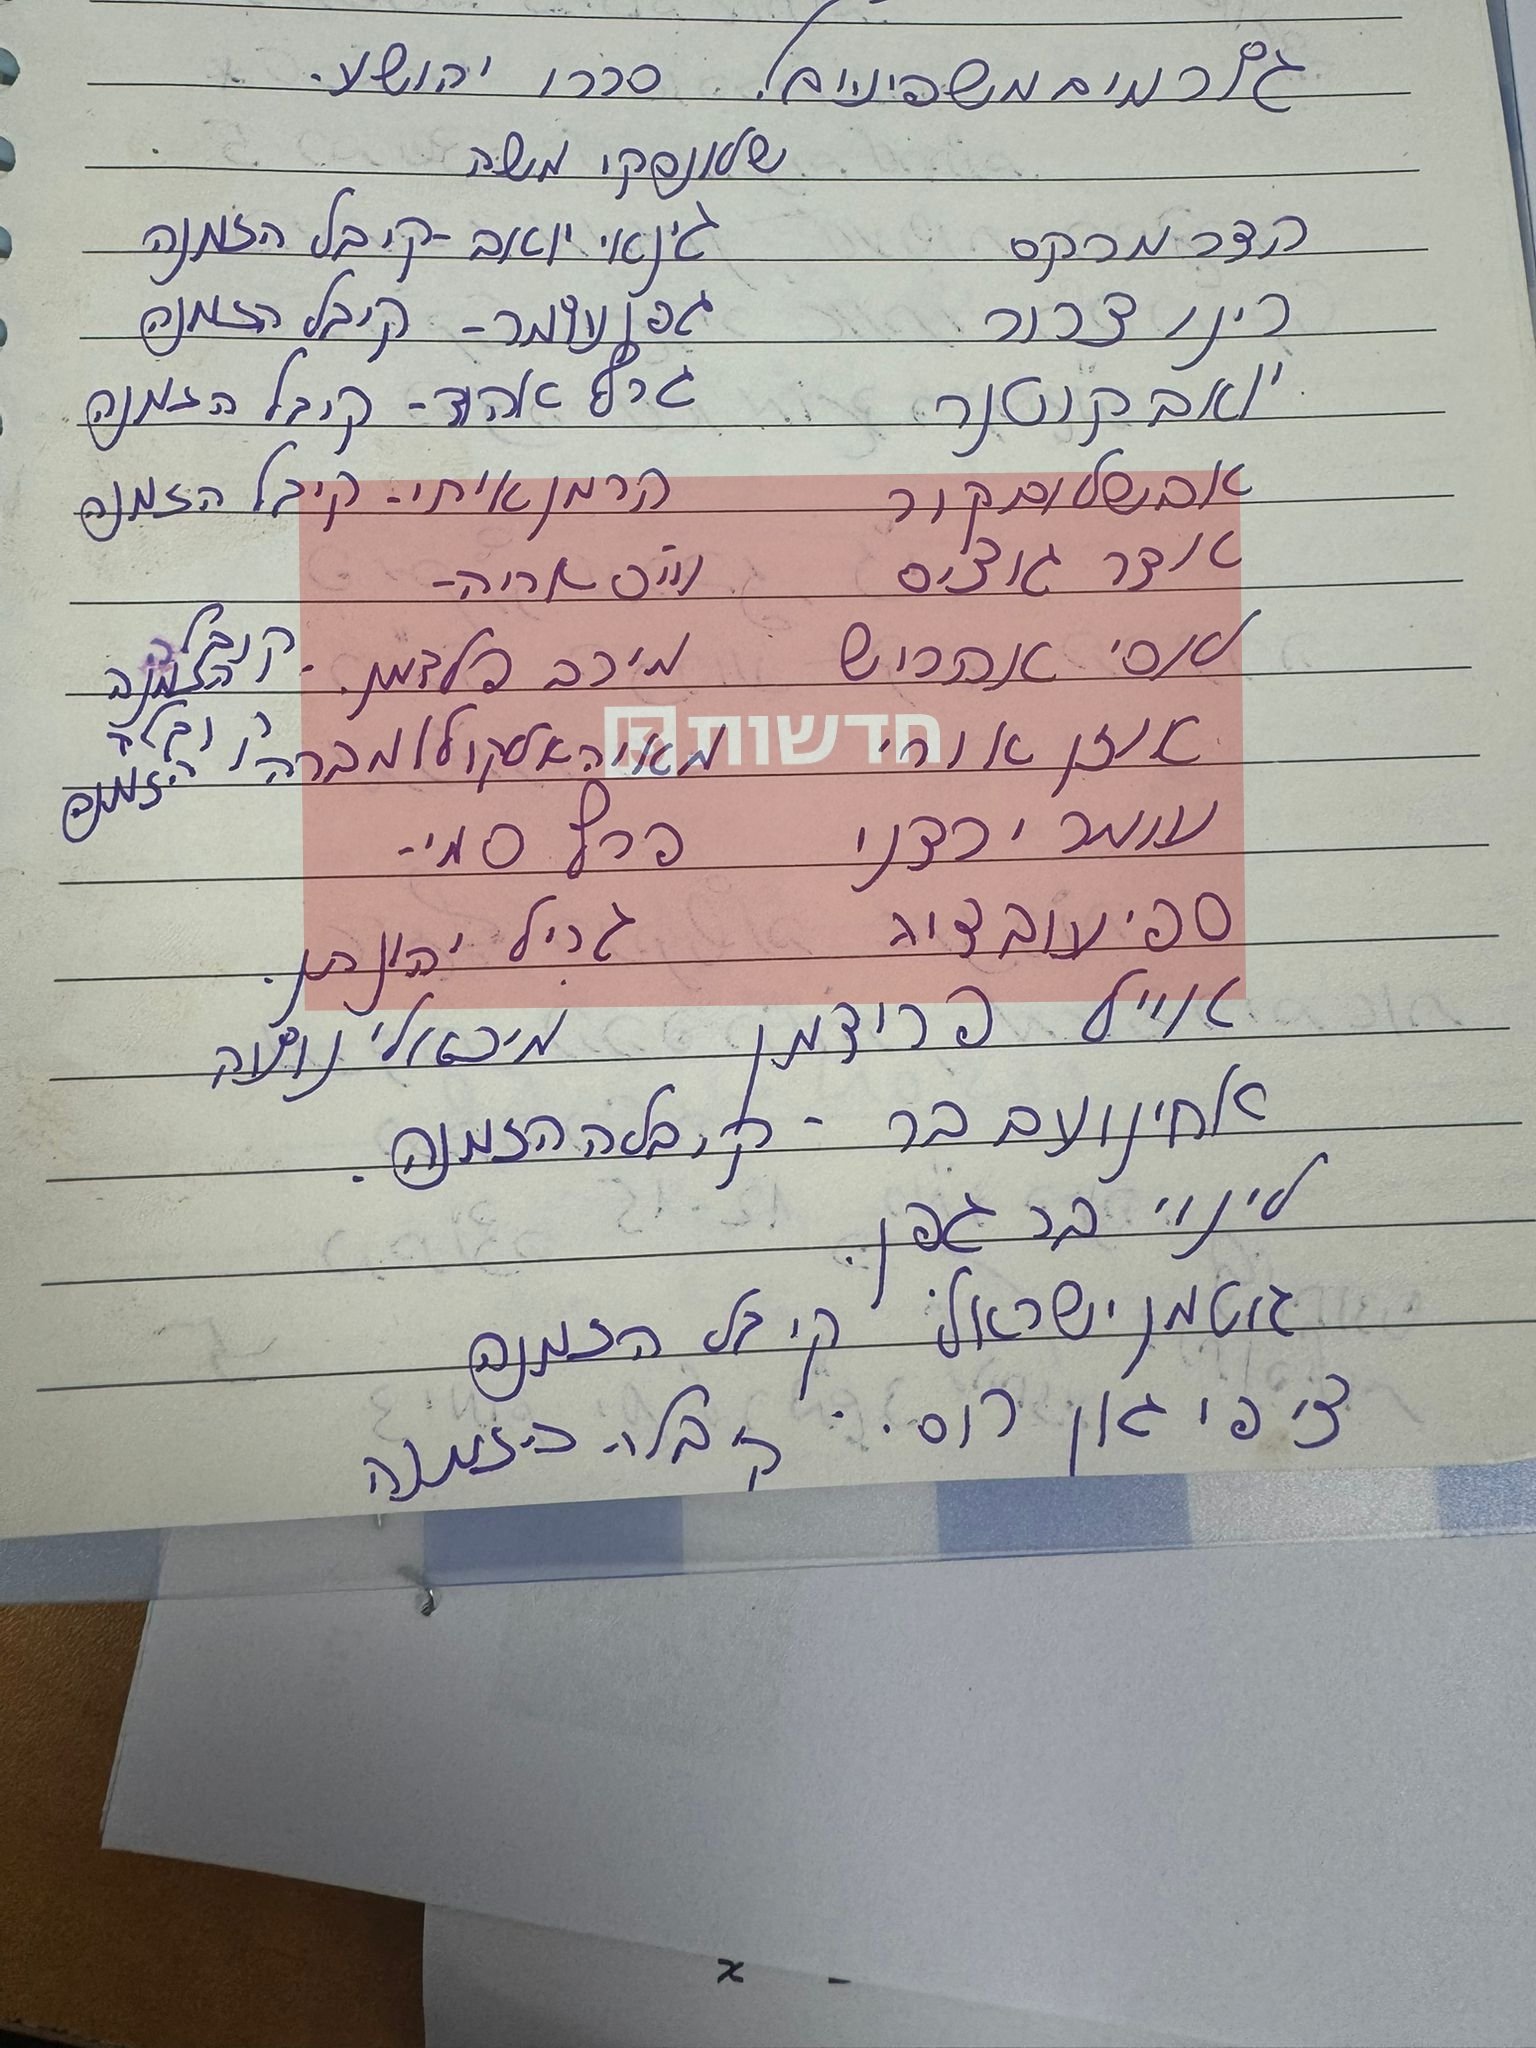 גורמים משפיעים. סררו יהושע.
שלונסקי משה
הדר מרקס גינאי יואב - קיבל הזמנה
רינו צרור גפן עומר - קיבל הזמנה
יואב קוטנר גרף אהוד - קיבל הזמנה
אבשלום קור הרמן איתי - קיבל הזמנה
אודר גוצים וייס אריה -
לוסי אהריש מירב פלדמן. - קיבלה הזמנה
חדשות 13
אוזן אורי קיבלה הזמנה
עומר ירדני פרץ סמי -
ספי עובדיה גריל יהונתן.
אוייל פרידמן מיכאלי נועה
אחינועם בר - קיבלה הזמנה.
לינוי בר גפן.
גוטמן ישראל: קיבל הזמנה
ציפי גון רוס. - קיבלה הזמנה
x -